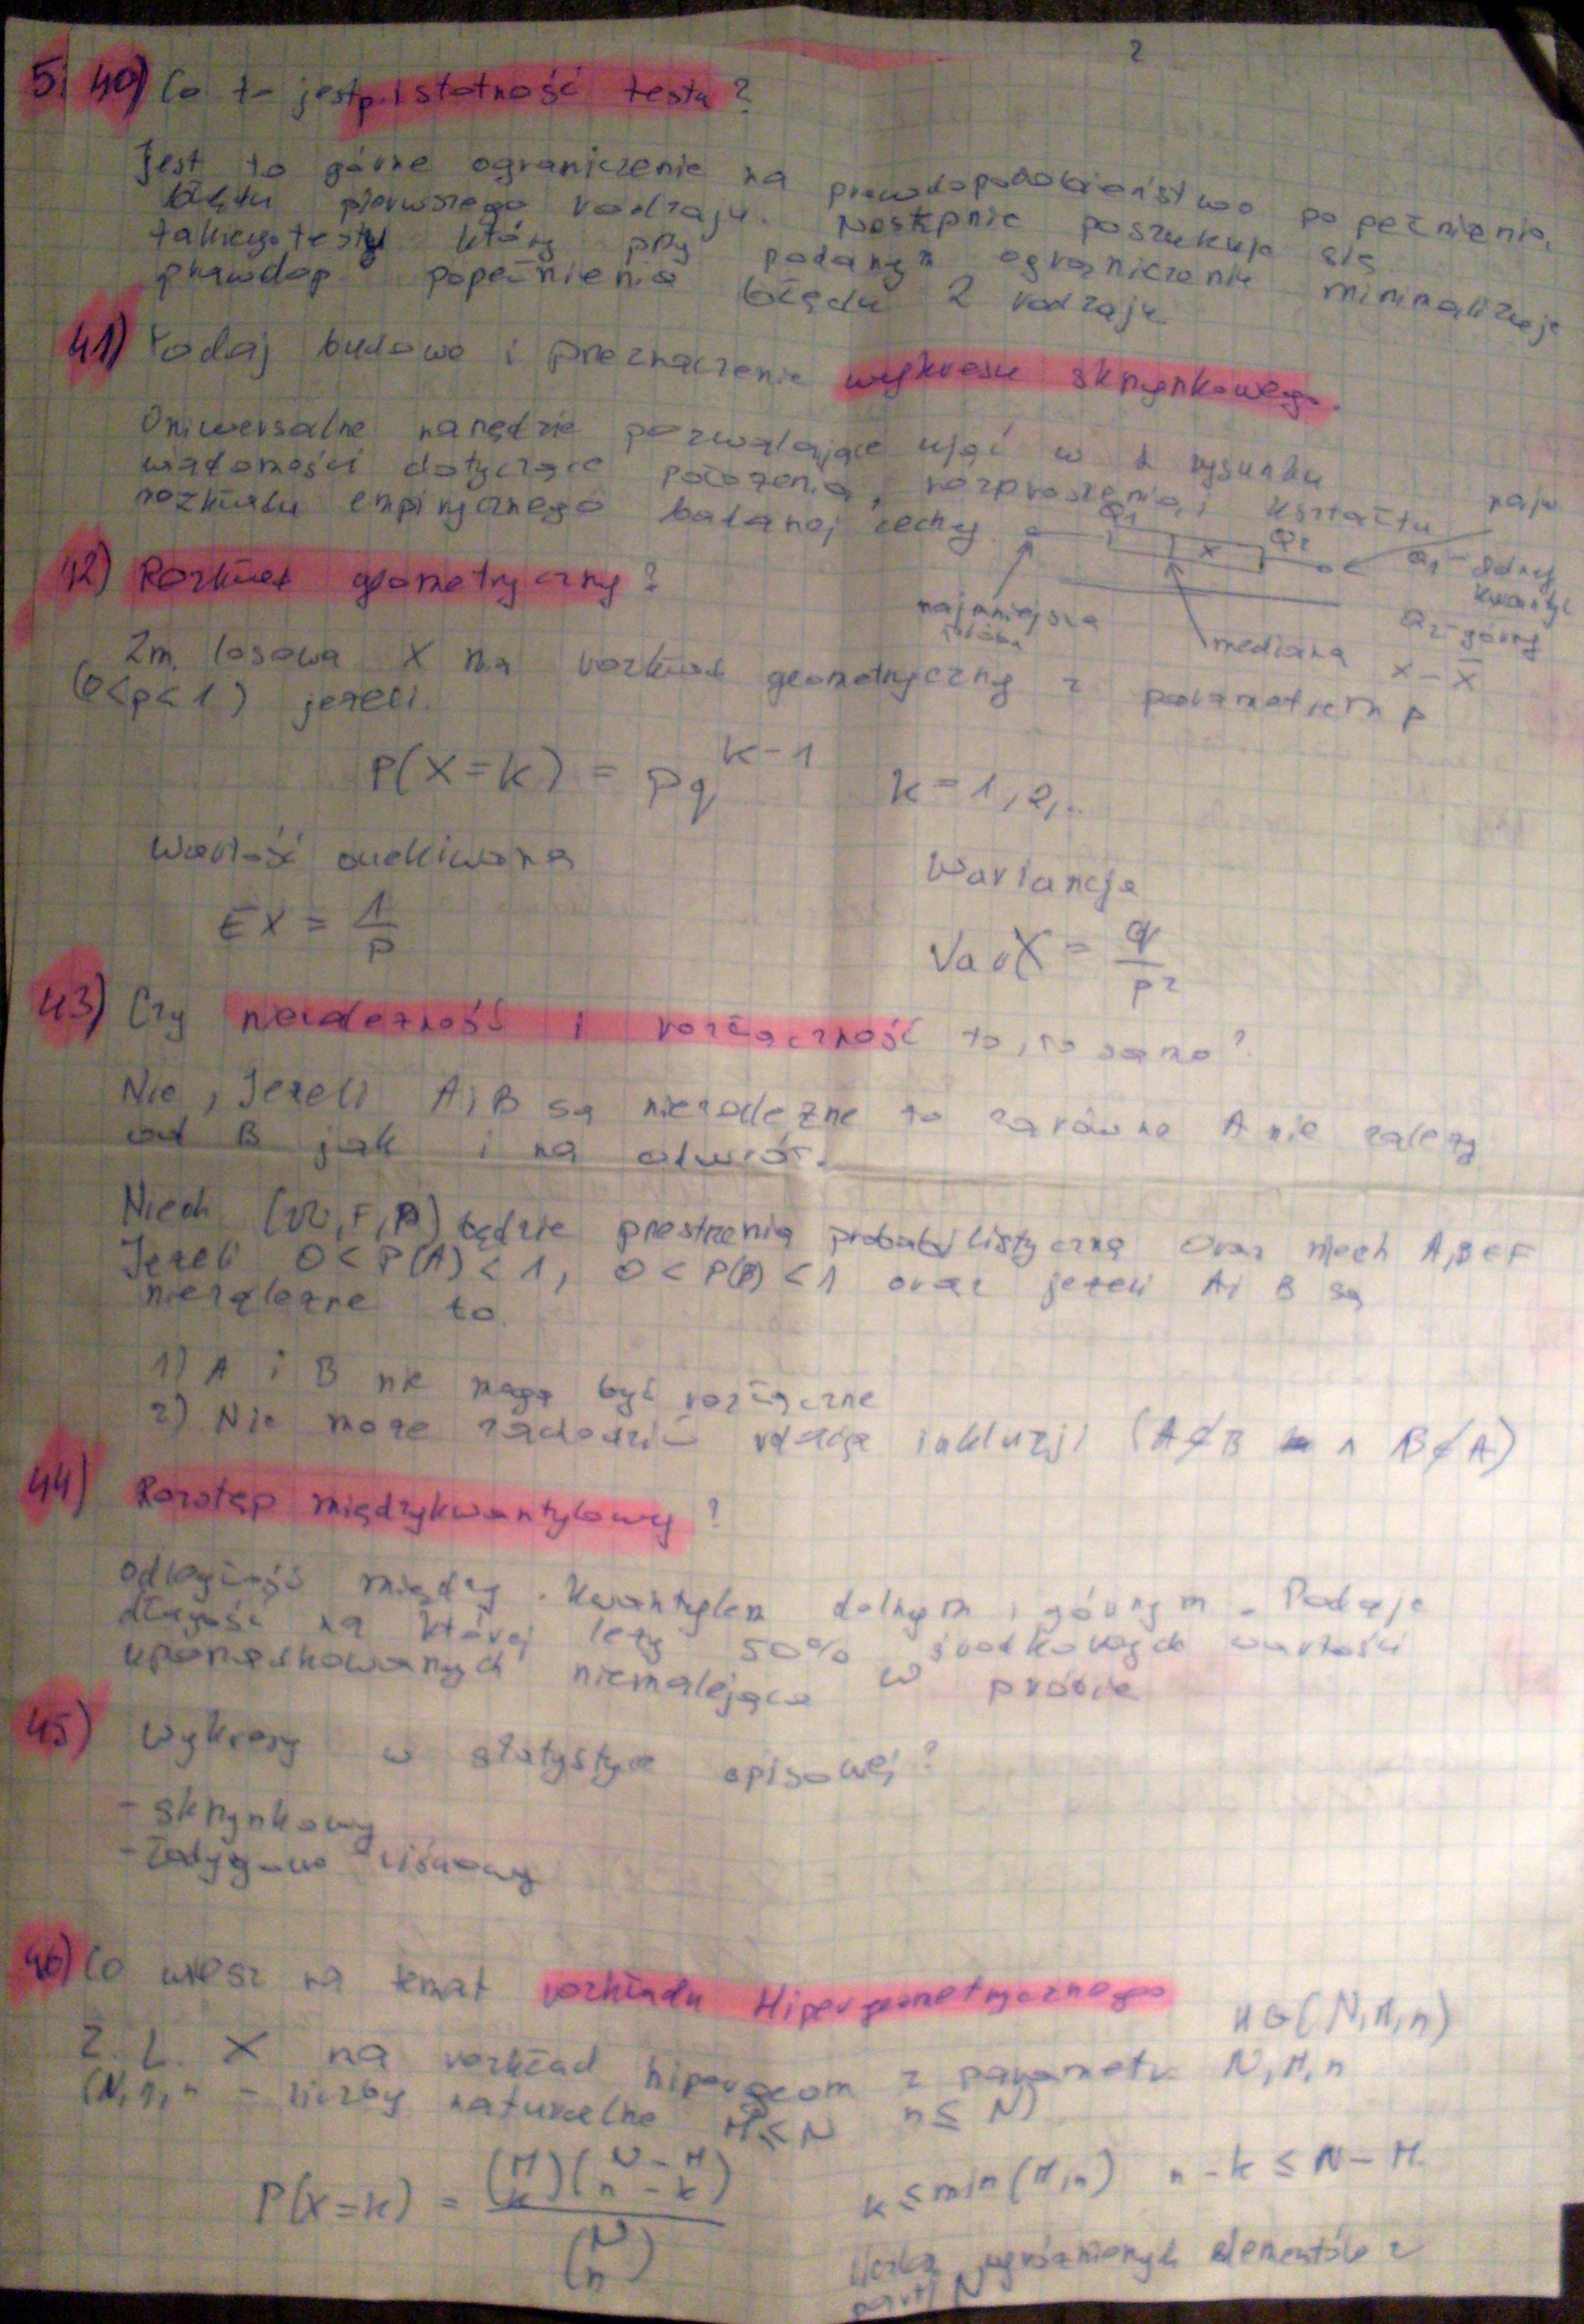 2
5. 40) Co to jest p. istotność testu?
Jest to górne ograniczenie na prawdopodobieństwo popełnienia
błędu pierwszego rodzaju. Następnie poszukuje się
takiego testu który przy podanym ograniczeniu minimalizuje
prawdop popełnienia błędu 2 rodzaju
41) Podaj budowę i przeznaczenie wykresu skrzynkowego.
Uniwersalne narzędzie pozwalające ująć w 1 rysunku
wiadomości dotyczące położenia, rozproszenia i kształtu
rozkładu empirycznego badanej cechy
Q1
x
Q2
najw
najmniejsza
mediana
Q1 - dolny
kwantyl
Q2 - górny
x - x̄
42) Rozkład geometryczny?
Zm. losowa X ma rozkład geometryczny z parametrem p
(0<p<1) jeżeli.
P(X=k) = pq^{k-1} k=1,2,..
Wartość oczekiwana Wariancja
EX = 1/p VarX = q/p²
43) Czy niezależność i rozłączność to, to samo?
Nie, Jeżeli A i B są niezależne to zarówno A nie zależy
od B jak i na odwrót.
Niech (Ω, F, P) będzie przestrzenią probabilistyczną oraz niech A,B∈F
Jeżeli 0<P(A)<1, 0<P(B)<1 oraz jeżeli A i B są
niezależne to
1) A i B nie mogą być rozłączne
2) Nie może zachodzić relacja inkluzji (A⊄B ∧ B⊄A)
44) Rozstęp międzykwantylowy?
odległość między kwantylem dolnym i górnym. Podaje
długość na której leży 50% środkowych wartości
uporządkowanych niemalejąco w próbie
45) Wykresy w statystyce opisowej?
- skrzynkowy
- łodygowo liściowy
46) Co wiesz na temat rozkładu Hipergeometrycznego
HG(N,M,n)
Z. L. X ma rozkład hipergeom z parametr N,M,n
(N,M,n - liczby naturalne M≤N n≤N)
P(X=k) = (M k)(N-M n-k) / (N n) k≤min(M,n) n-k≤N-M
liczba wyróżnionych elementów z
partii N